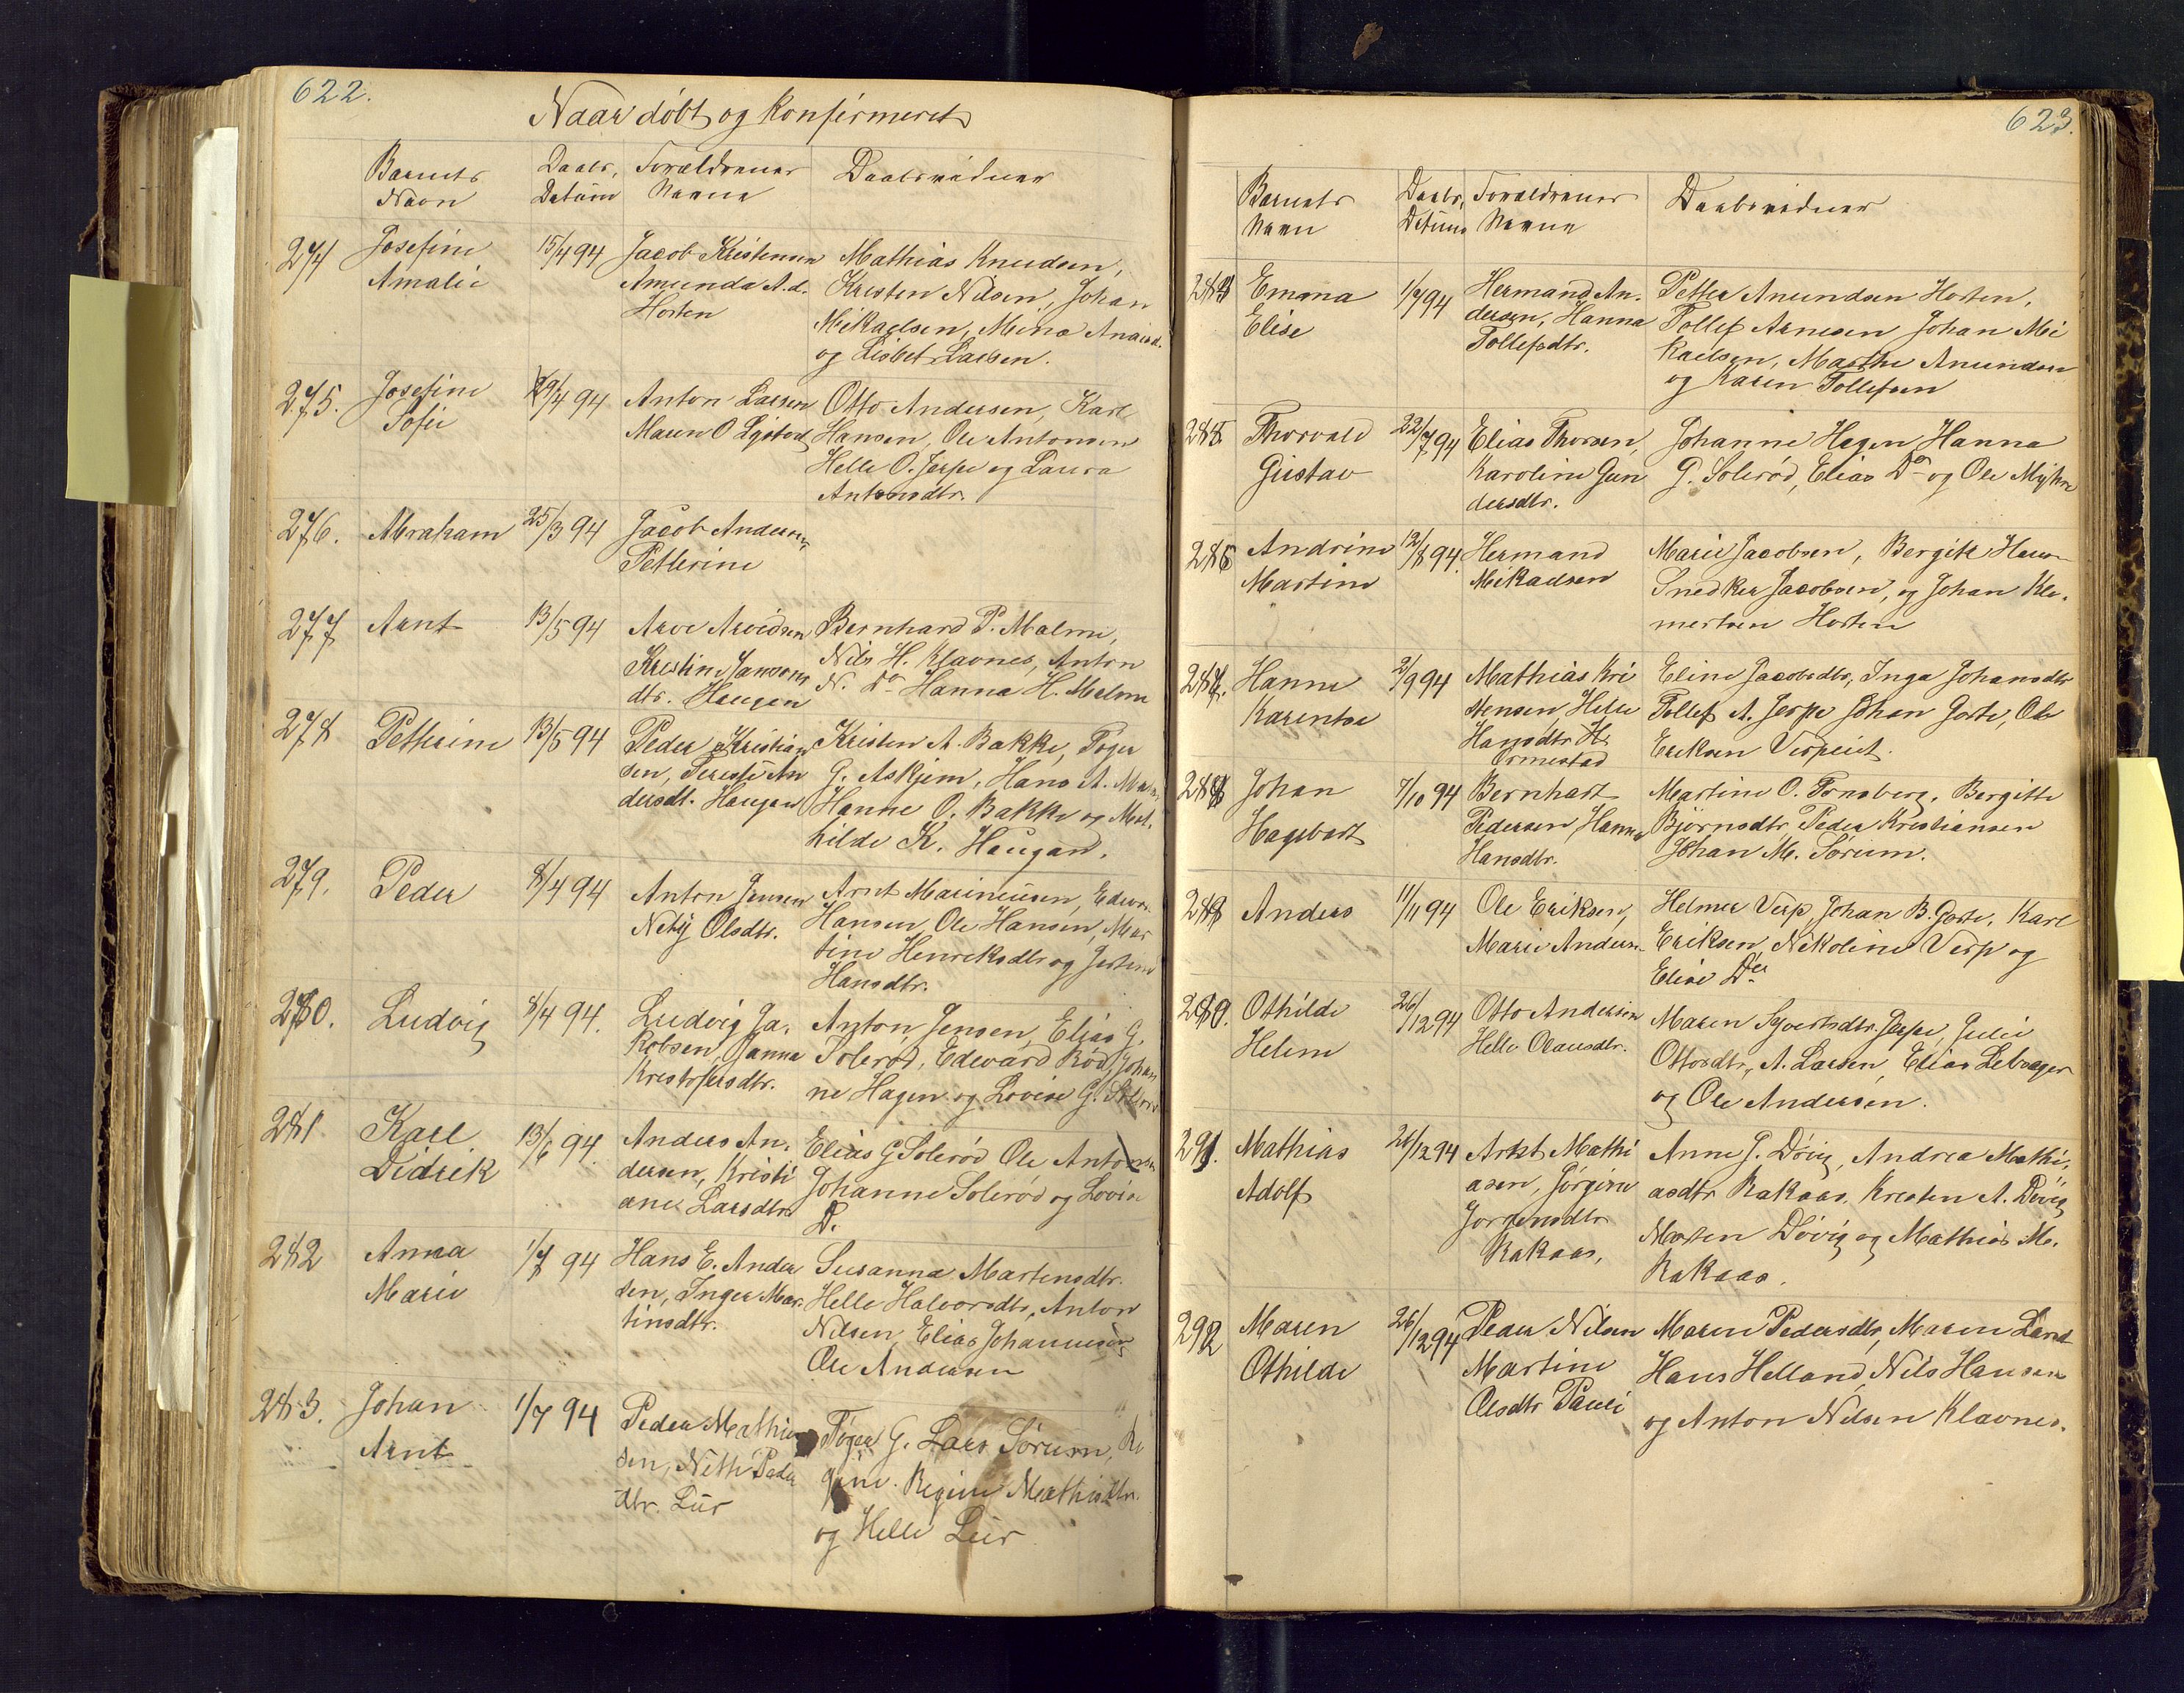 622.
Naar døbt og Konfirmeret
Barnets Navn
Daabs. Datum
Forældrenes Navne
Daabsvidner
274 Josefine Amalie 15/4 94
Jacob Kristensen
Amunda A.d.
Horten
Mathias Knudsen,
Kristen Nilsen, Johan
Mikaelsen, Mina
og Lisbet Larsen.
275. Josefine Sofie 29/4 94
Anton Larsen
Maren O
Otto Andersen, Karl
Hansen, Ole Antonsen
Helle O. Jerpe og Laura
Antonsdtr.
276. Abraham 25/3 94
Jacob Andersen,
Petterine
277 Arnt 13/5 94
Arve Arvidsen
Kristine
dtr. Haugan
Bernhard P. Malmi,
Nils H. Klavnes, Anton
N. Do Hanna H. Malmi
278 Petterine 13/5 94
Peder Kristian
sen, An
dersdt. Haugan
Kristen A. Bakke,
G. Askjem, Hans A.
Hanne O. Bakke og Mat.
hilde K. Haugan.
279. Peder 8/4 94
Anton Jensen
Olsdtr.
Arnt Marinius​en, Edvar
Hansen, Ole Hansen, Mar
tine Henriksdtr og
Hansdtr.
280. Ludvig 8/4 94.
Ludvig Ja.
kobsen, Janna
Kristofersdtr.
Anton Jensen, Elias G.
Solerød, Edward Rød, Johan
ne Hagen og Lovise G. Solerød
281 Karl Didrik 13/6 94.
Anders An.
dersen, Kristi
ane Larsdtr
Elias G Solerød Ole Antonsen
Johanne Solerød og Lovise
D.
282 Anna Marie 1/7 94
Hans E. Ander
sen, Inger Mar.
tinsdtr.
Susanna Martensdtr.
Helle Halvorsdtr, Anton
Nilsen, Elias Johannesen,
Ole Andersen
283. Johan Arnt 1/7 94
Peder Mathia
sen, Nette Peder
dtr. Lur
G. Lars Sørum, Re
gine. Regine Mathisdtr.
og Helle Lur
623.
Barnets Navn
Daabs. Datum
Forældrenes Navne
Daabsvidner
284 Emma Elise 1/7 94
Hermand An.
dersen, Hanna
Tollefsdtr.
Petter Anundsen Horten,
Tollef Arnesen Johan Mi
kaelsen, Marthe Anundsen
og Karen Tollefsen
285. Thorvald Gustav 22/7 94
Elias Thorsen,
Karoline Gun
dersdtr.
Johanne Hagen Hanna
G. Solerød, Elias Do og Ole Myhre
286 Andrine Martine 12/8 94.
Hermand
Mikaelsen
Marie Jacobsen, Bergite
Snedker Jacobsen, og Johan Kle.
mertsen Horten
287. Hanne Karentse 2/9 94
Mathias Kri
stensen, Helle
Hansdtr H.
Ormestad
Eline Jacobsdtr, Inga Johansdtr
Tollef A. Jerpe Johan Gorte, Ole
Eriksen
288 Johan Hagebart 7/10 94
Bernhart
Pedersen, Hanna
Hansdtr.
Martine O. Tonsberg. Bergitte
Bjørnsdtr, Peder Kristiansen
Johan M. Sørum.
289 Anders 11/11 94
Ole Eriksen,
Marie Anders.
Helmer Verp, Johan B. Gorte, Karl
Eriksen, Nikoline Verp og
Elise Do
290. Othilde Heline 26/12 94
Otto Andersen
Helle Olausdtr.
Maren Syvertsdtr. Jerpe, Julie
Ottosdtr, A. Larsen, Elias
og Ole Andersen.
291. Mathias Adolf 26/12 94
Mathi
asen, Jørgine
Jorgensdtr
Rakaas,
Anne J. Døvig, Andrea Mathi.
asdtr Rakaas, Kresten A. Døvig
Morten Døvig og Mathias M.
Rakaas.
292 Maren Othilde 26/12 94
Peder Nilsen
Martine
Olsdtr
Maren Pedersdtr, Maren
Hans Helland, Nils Hansen
og Anton Nilsen Klavnes.